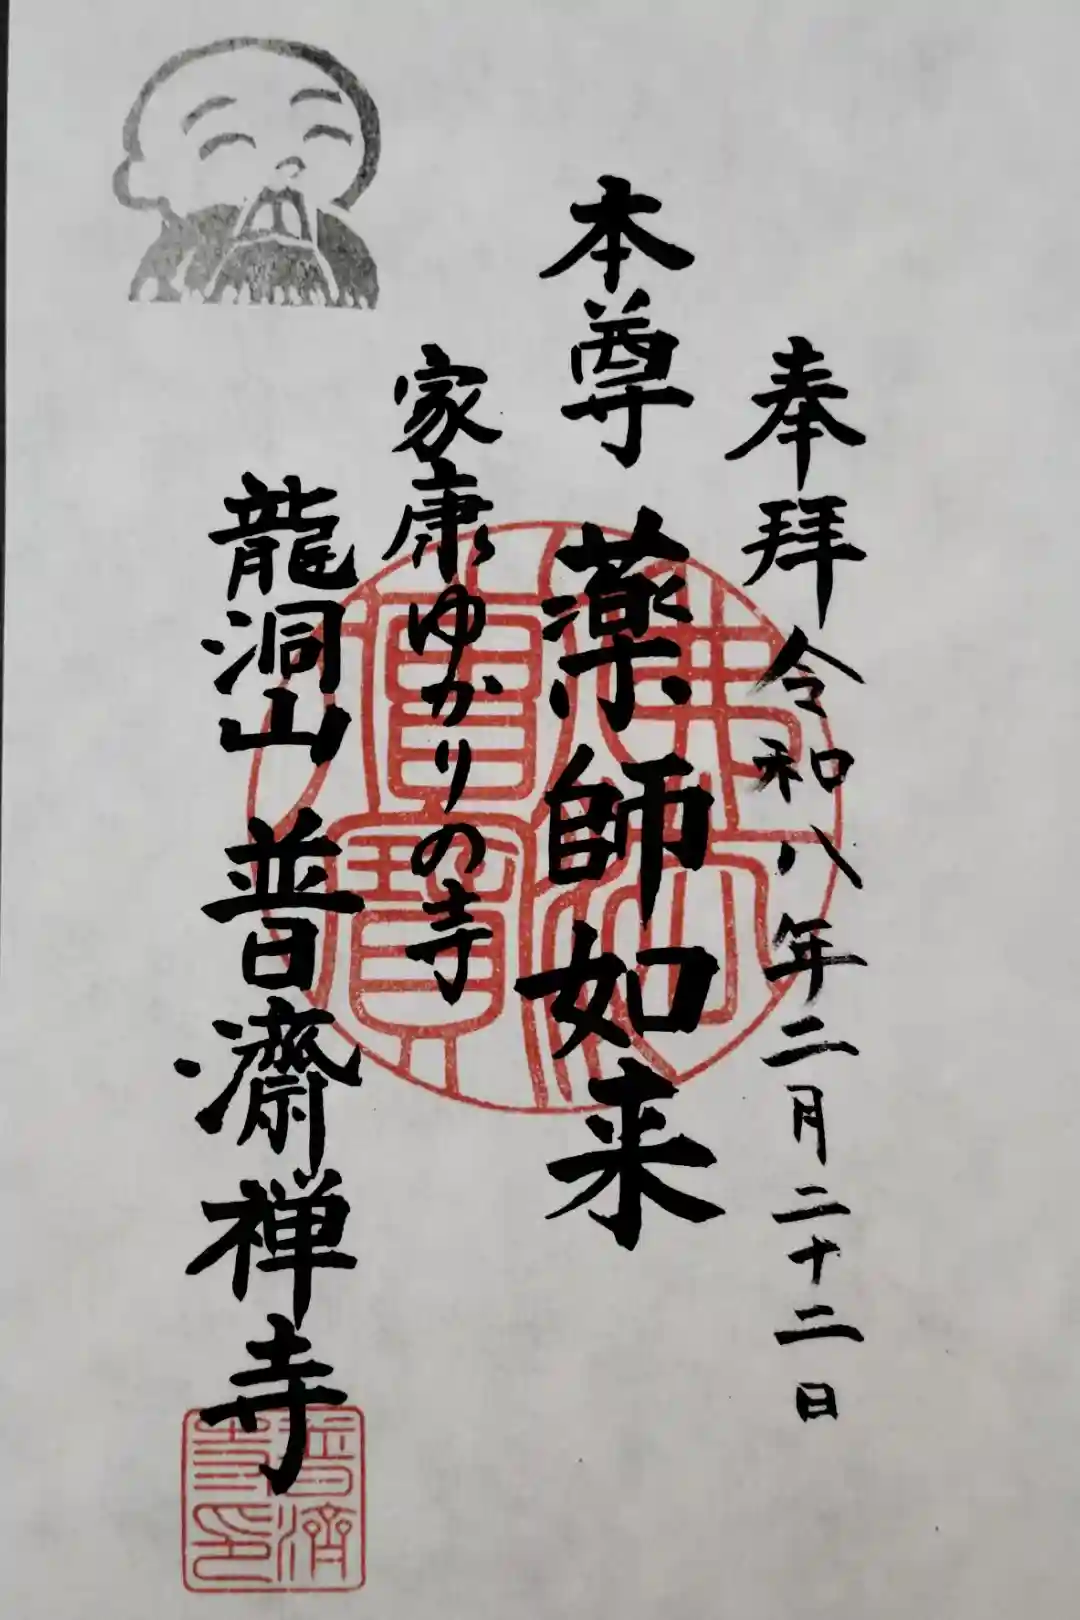 奉拝 令和八年二月二十二日
本尊 薬師如来
家康ゆかりの寺
龍洞山 普濟禅寺
佛法僧寶
普濟寺印